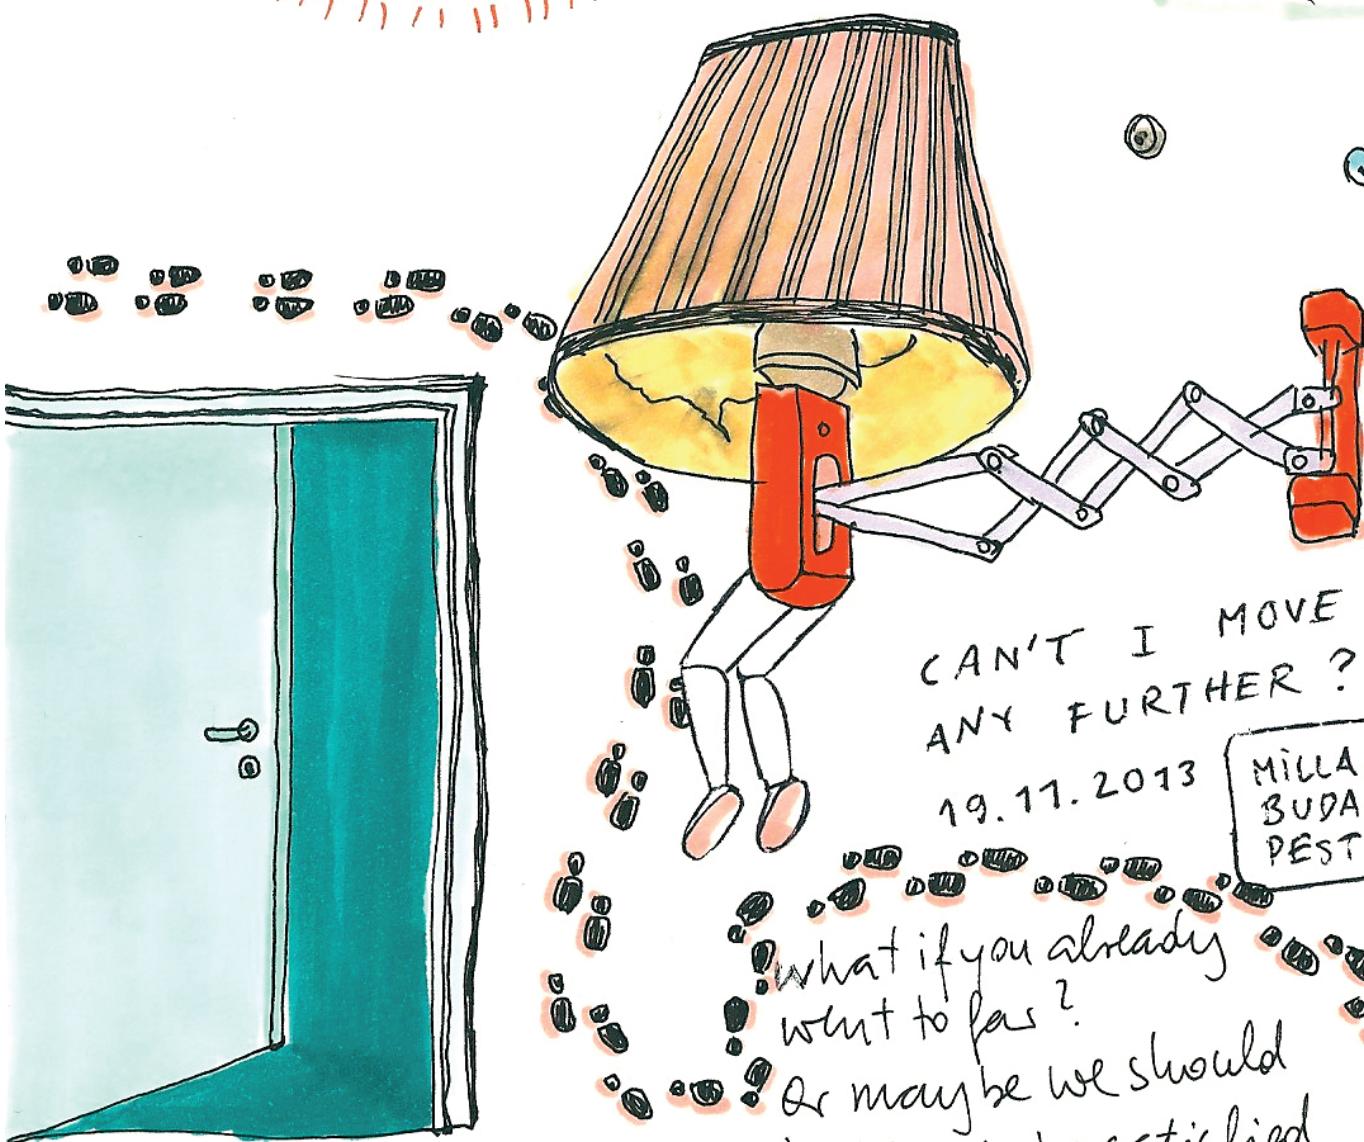 CAN'T I MOVE
ANY FURTHER ?
19.11.2013
MiLLA
BUDA
PEST
what if you already
went to far ?
Or maybe we should
satisfied